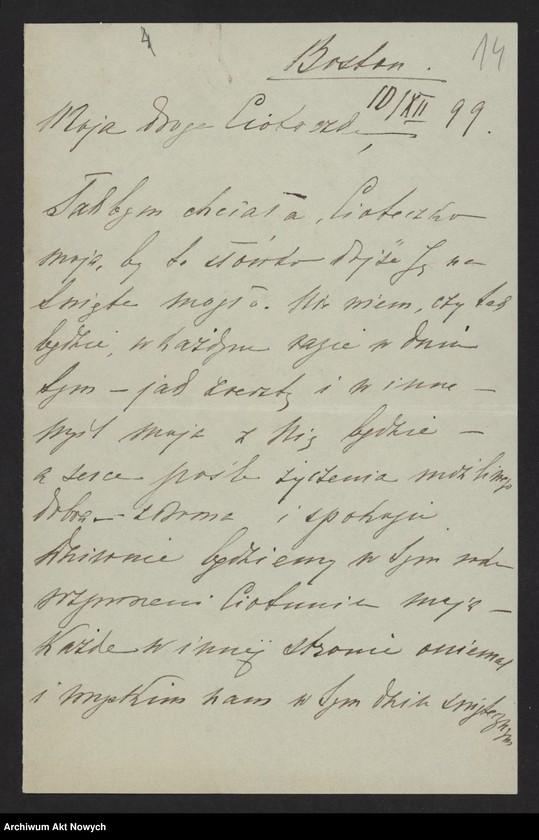 4
14
Boston.
10/XII 99.
Moja droga Cioteczko,
Takbym chciała, Cioteczko
moja, by to słówko dojść Ją na
Święta mogło. Nie wiem, czy tak
będzie, w każdym razie w dniu
tym – jak zresztą i w inne –
myśl moja z Nią będzie –
a serce pośle życzenia możliwego
dobra – zdrowia i spokoju
Dziwnie będziemy w tym roku
rozproszeni Ciotuniu moja –
Każde w innej stronie oniemal
i wszystkim nam w tym dniu świątecznym
Archiwum Akt Nowych